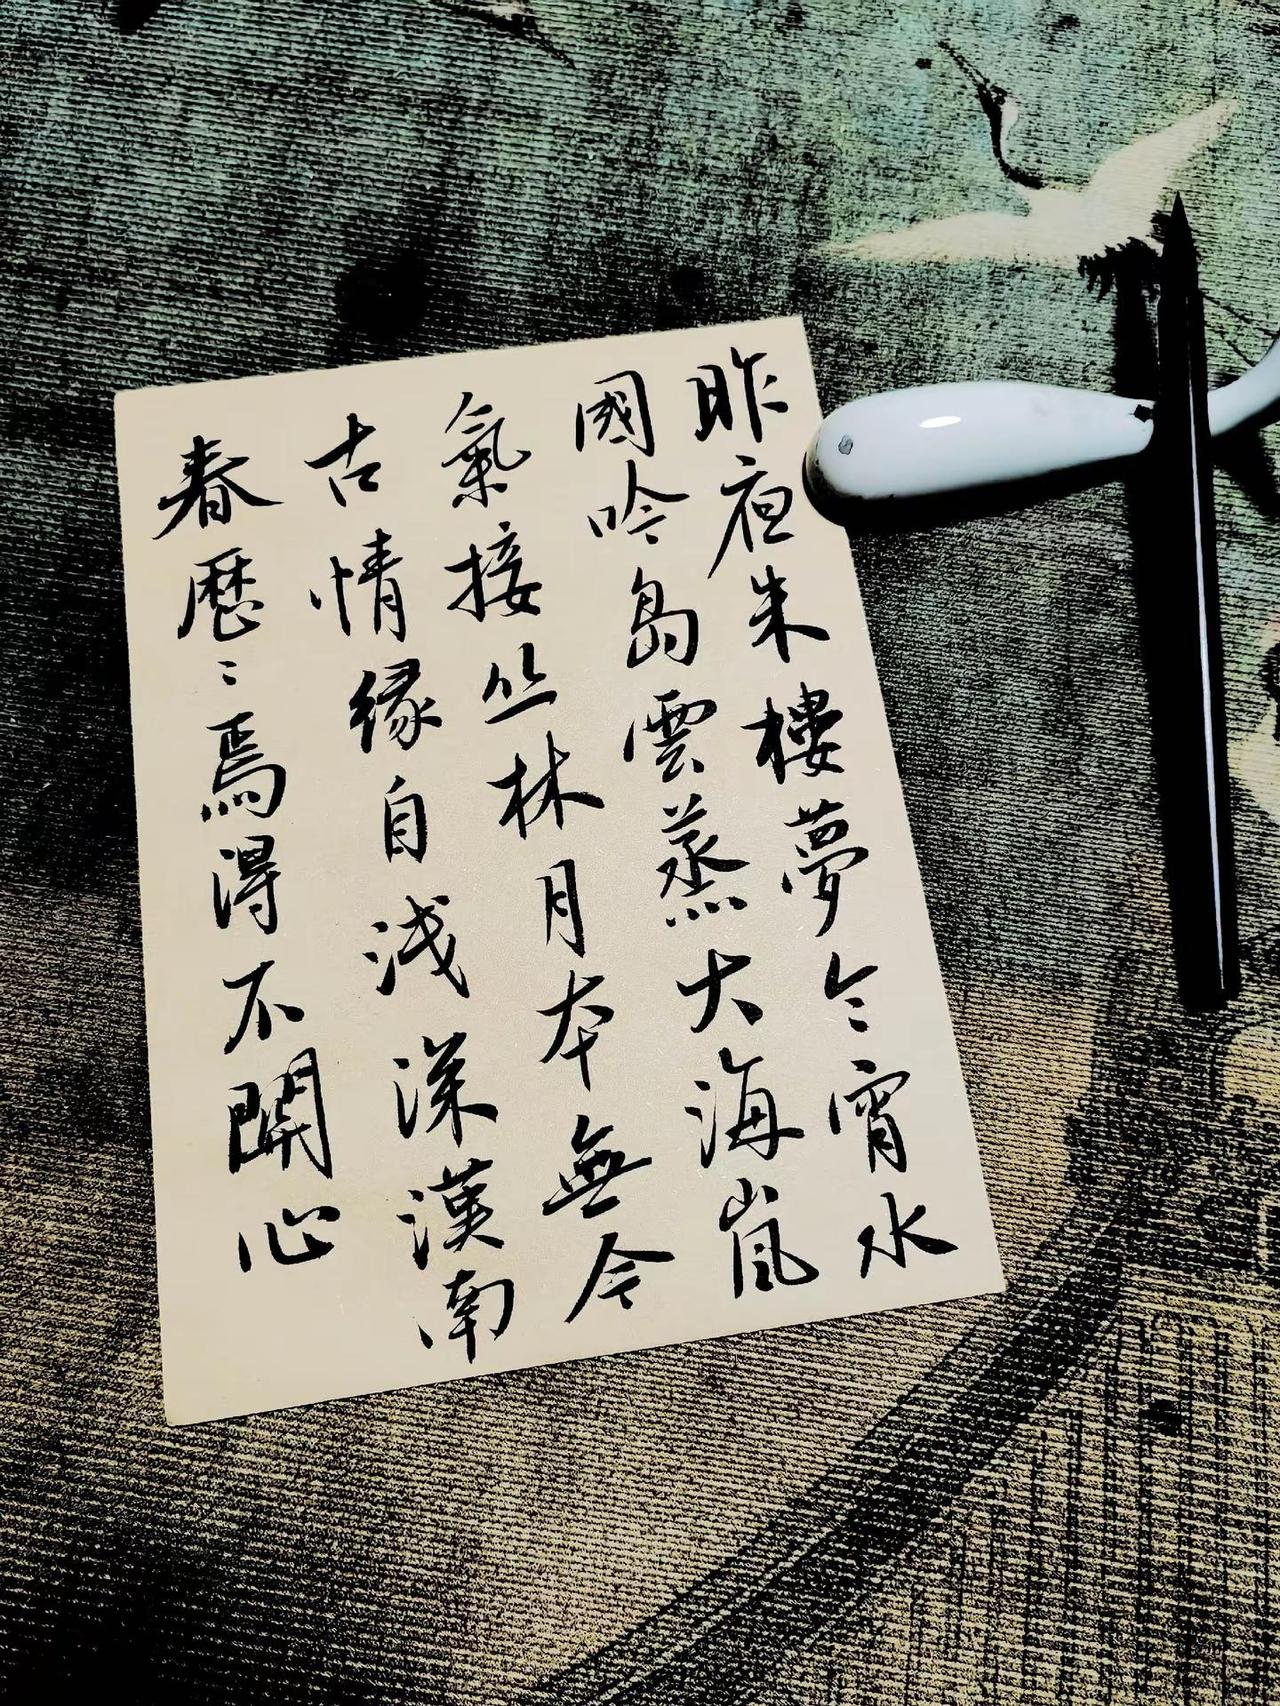 昨夜朱樓夢今宵水
國吟島雲蒸大海嵐
氣接丛林月本無今
古情缘自浅深漢南
春歷〻焉得不開心